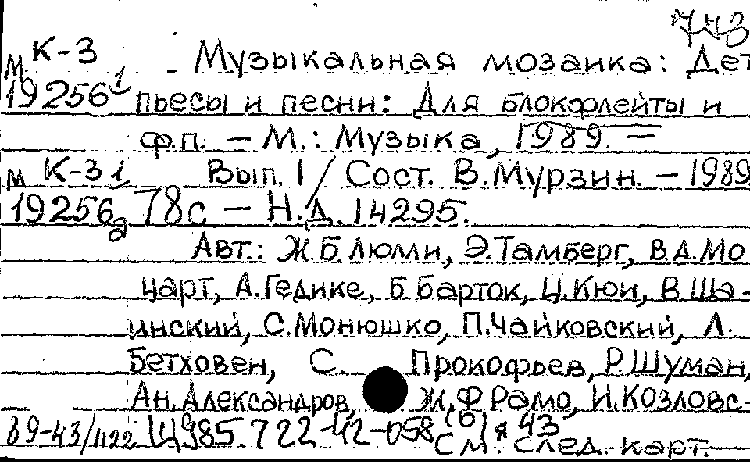 743
м К-3 Музыкальная мозаика: Дет
19256 1 пьесы и песни: Для блокфлейты и
ф.п. – М.: Музыка, 1989. –
м К-3 1 Вып. 1 / Сост. В. Мурзин. – 1989
19256 2 78с – Н.Д. 14295.
Авт.: Ж Б. Люлли, Э. Тамберг, В.А. Мо
царт, А. Гедике, Б. Барток, Ц. Кюи, В. Ша-
инский, С. Монюшко, П. Чайковский, Л.
Бетховен, С. Прокофьев, Р. Шуман,
Ан. Александров, Ж. Ф Рамо, И. Козловс-
89-43/1122 Щ985.722 См. след. карт.